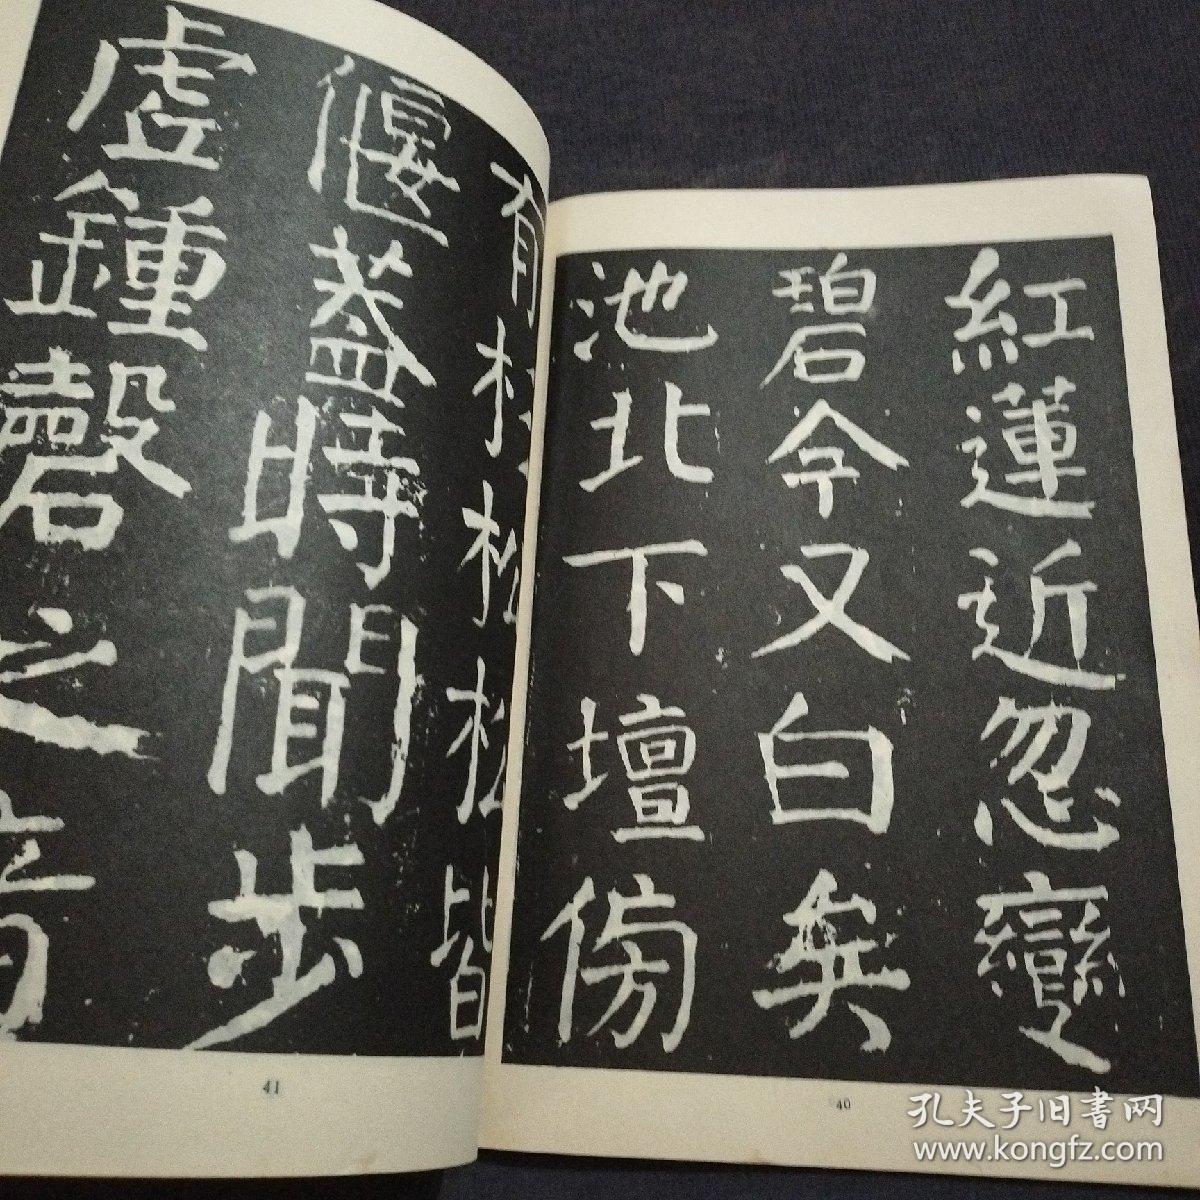 紅蓮近忽變
碧今又白矣
池北下壇傍
有杉松松皆
偃蓋時聞步
虛鍾磬之音
41
40
孔夫子旧书网
www.kongfz.com